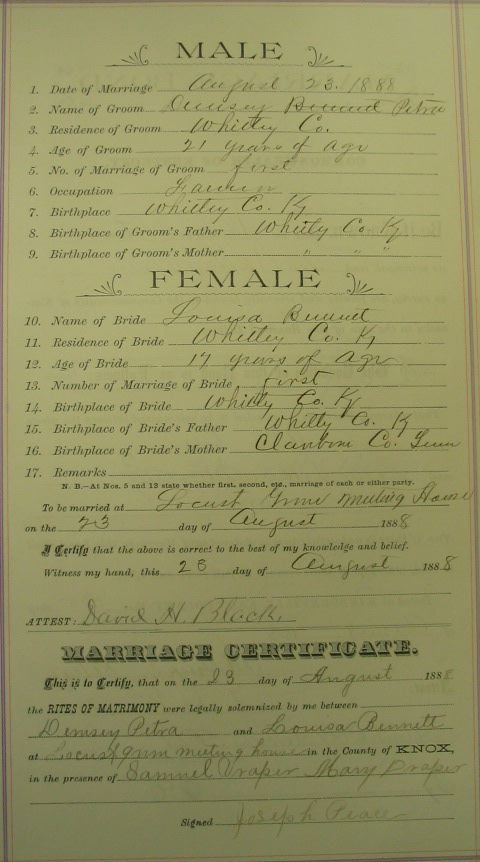 MALE
1. Date of Marriage August 23. 1888
2. Name of Groom Demsey Petra
3. Residence of Groom Whitley Co.
4. Age of Groom 21 years of Age
5. No. of Marriage of Groom first
6. Occupation
7. Birthplace Whitley Co. Ky
8. Birthplace of Groom's Father Whitly Co. Ky
9. Birthplace of Groom's Mother " " "
FEMALE
10. Name of Bride Louisa
11. Residence of Bride Whitley Co. Ky
12. Age of Bride 17 years of Age
13. Number of Marriage of Bride, first
14. Birthplace of Bride Whitly Co. Ky
15. Birthplace of Bride's Father Whitly Co. K
16. Birthplace of Bride's Mother Co. Tenn
17. Remarks
N. B.—At Nos. 5 and 13 state whether first, second, etc., marriage of each or either party.
To be married at Locust meeting House
on the 23 day of August 1888
I Certify that the above is correct to the best of my knowledge and belief.
Witness my hand, this 23 day of August 1888
ATTEST: David H. Black,
MARRIAGE CERTIFICATE.
This is to Certify, that on the 23 day of August 1888
the RITES OF MATRIMONY were legally solemnized by me between
Demsey Petra and Louisa Bennett
at Locust meeting house in the County of KNOX,
in the presence of Samuel Draper Mary Draper
Signed Joseph